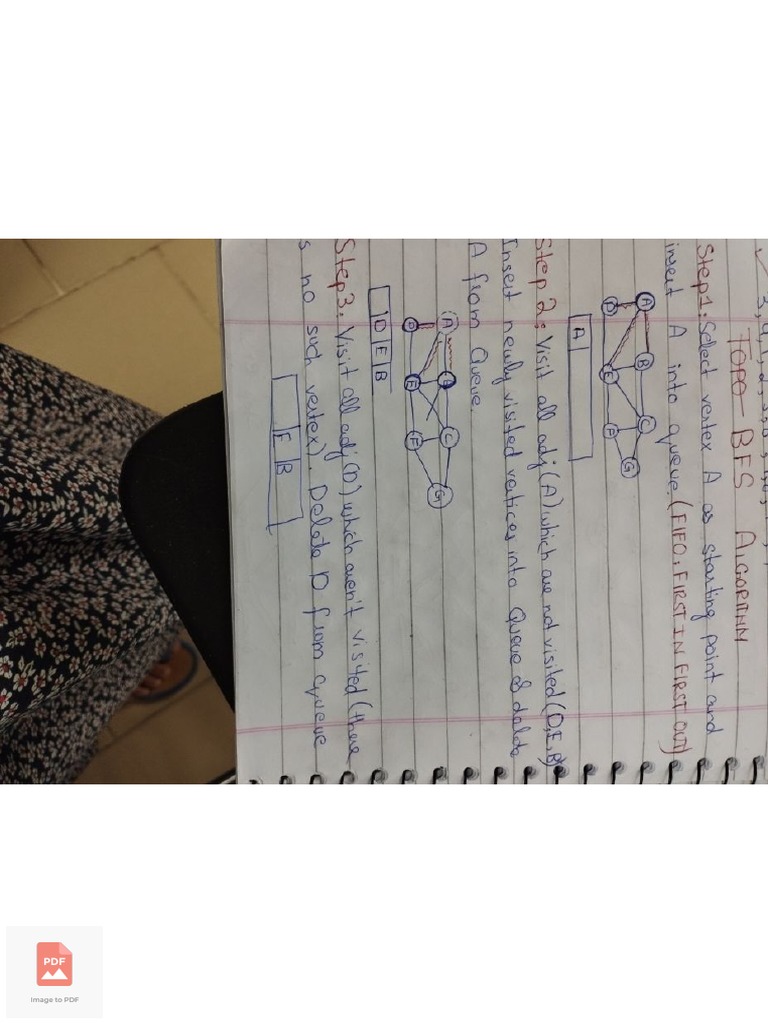 3, 4, 1, 2, 5,
TOPO- BFS ALGORITHM
Step1: Select vertex A as starting point and
insert A into queue. (FIFO, FIRST IN FIRST OUT)
A
B
D
E
C
F
G
A
Step 2: Visit all adj(A) which are not visited (D,E,B)
Insert newly visited vertices into Queue & delete
A from Queue.
A
D
E
C
F
G
D E B
Step3: Visit all adj(D) which aren't visited (there
s no such vertex). Delete D from queue
E B
PDF
Image to PDF